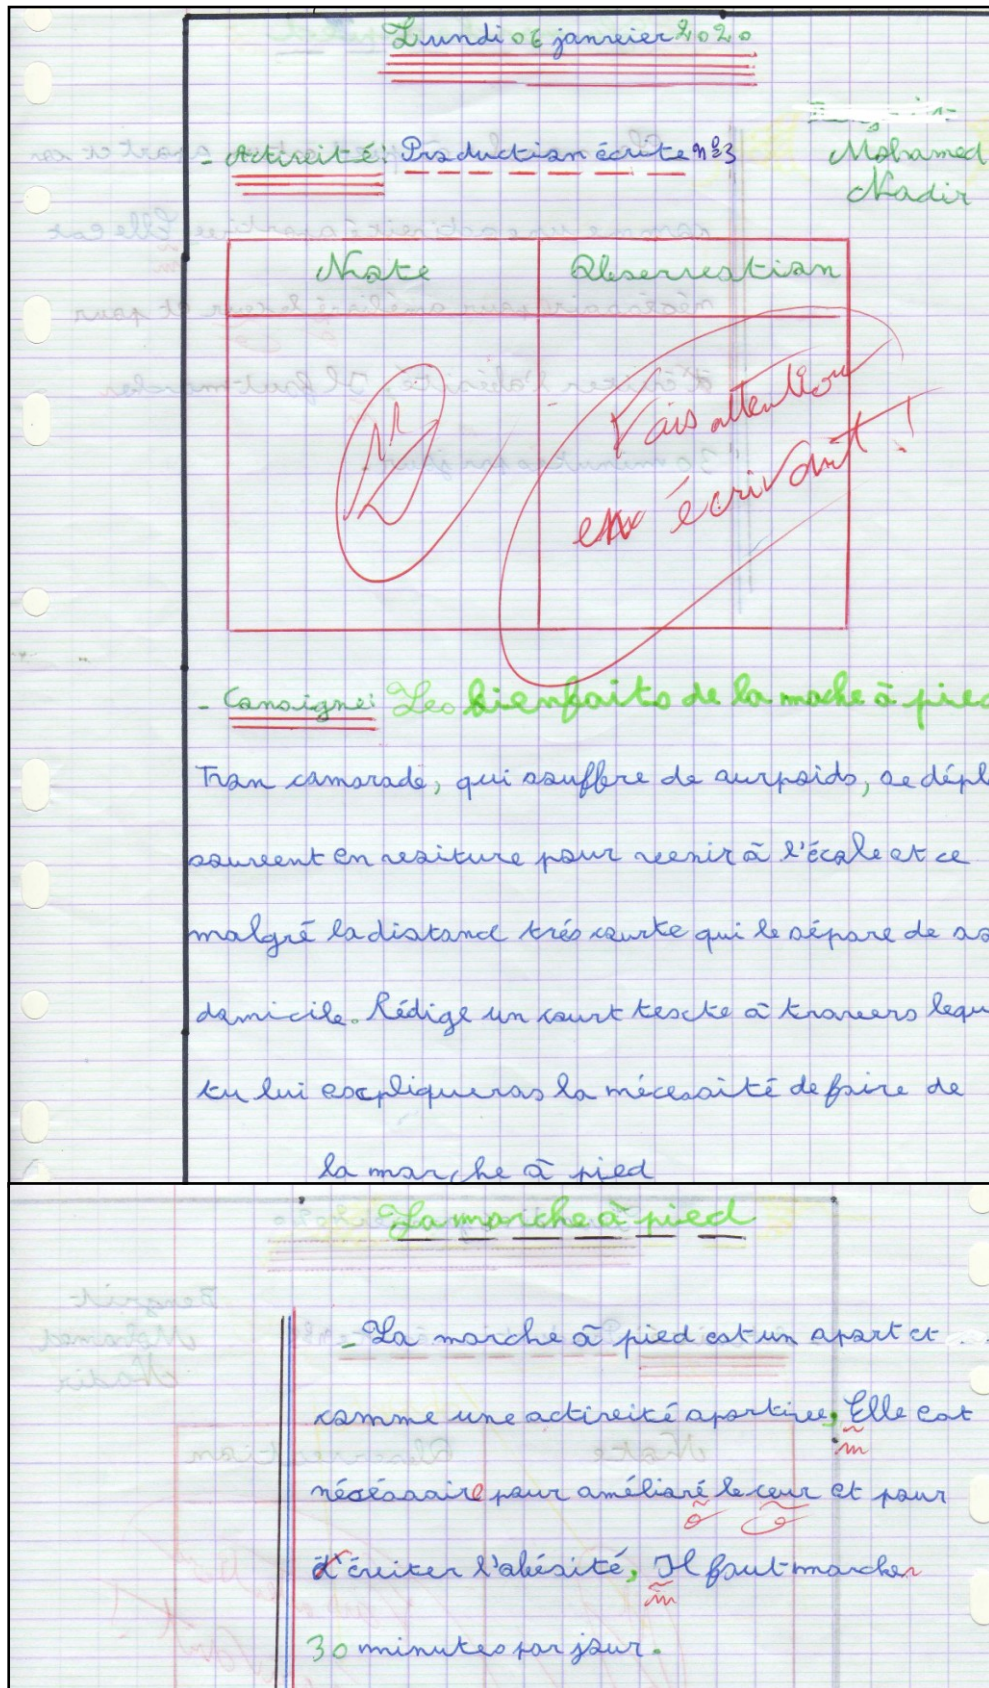 Lundi 06 janvier 2020
- Activité: Production écrite n°3
Mohamed
Nadir
Note Observation
Fais attention
en écrivant !
- Consigne: Les bienfaits de la mache à pied
Tron camarade, qui souffre de surpoids, se dépl
souvent en voiture pour venir à l'école et ce
malgré la distanc très courte qui le sépare de so
domicile. Rédige un court texte à travers lequ
tu lui expliqueras la nécessité de faire de
la marche à pied
La marche à pied
- La marche à pied est un sport et
comme une activité sportive, Elle est
m
nécéssaire pour amélioré le ceur et pour
d'éviter l'obésité, Il faut marcher
m
30 minutes par jour.